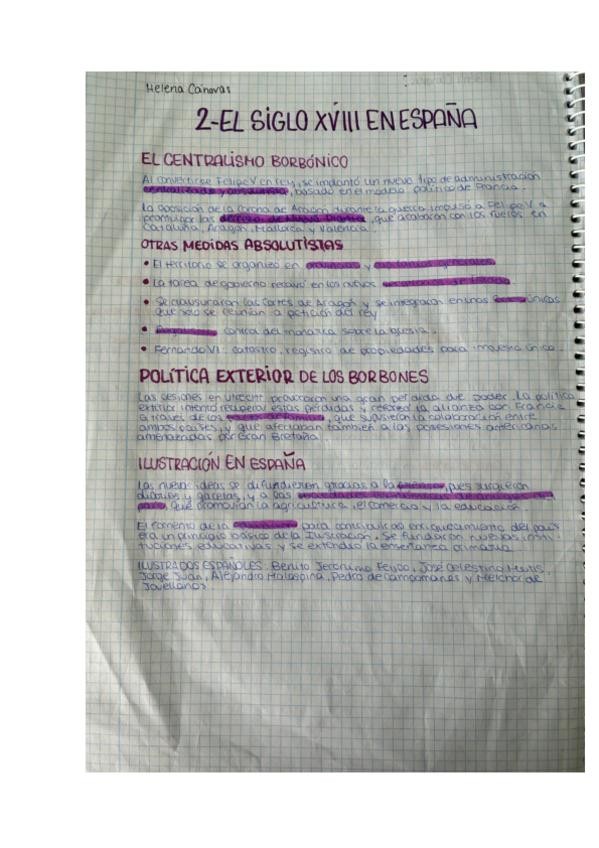 Helena Cánovas
2-EL SIGLO XVIII EN ESPAÑA
EL CENTRALISMO BORBÓNICO
Al convertirse Felipe V en rey, se implantó un nuevo tipo de administración
basado en el modelo político de Francia.
La oposición de la Corona de Aragón durante la guerra impulsó a Felipe V a
promulgar los decretos de Nueva Planta, que acabaron con los fueros en
Cataluña, Aragón, Mallorca y Valencia.
OTRAS MEDIDAS ABSOLUTISTAS
• El territorio se organizó en y
• La tarea de gobierno recayó en los nuevos
• Se clausuraron las Cortes de Aragón y se integraron en unas únicas
que solo se reunían a petición del rey
• control del monarca sobre la iglesia.
• Fernando VI: catastro, registro de propiedades para impuesto único.
POLÍTICA EXTERIOR DE LOS BORBONES
Las cesiones en Utrecht provocaron una gran pérdida de poder. La política
exterior intentó recuperar estas pérdidas y reforzó la alianza por Francia
a través de los que suponían la colaboración entre
ambos países, y que afectaban también a las posesiones americanas
amenazadas por Gran Bretaña.
ILUSTRACIÓN EN ESPAÑA
Las nuevas ideas se difundieron gracias a la pues surgieron
diarios y gacetas, y a las
que promovían la agricultura, el comercio y la educación.
El fomento de la para conseguir el enriquecimiento del país
era un principio básico de la Ilustración. Se fundaron nuevas insti-
tuciones educativas y se extendió la enseñanza primaria.
ILUSTRADOS ESPAÑOLES: Benito Jerónimo Feijoo, José Celestino Mutis,
Jorge Juan, Alejandro Malaspina, Pedro de Campomanes y Melchor de
Jovellanos.